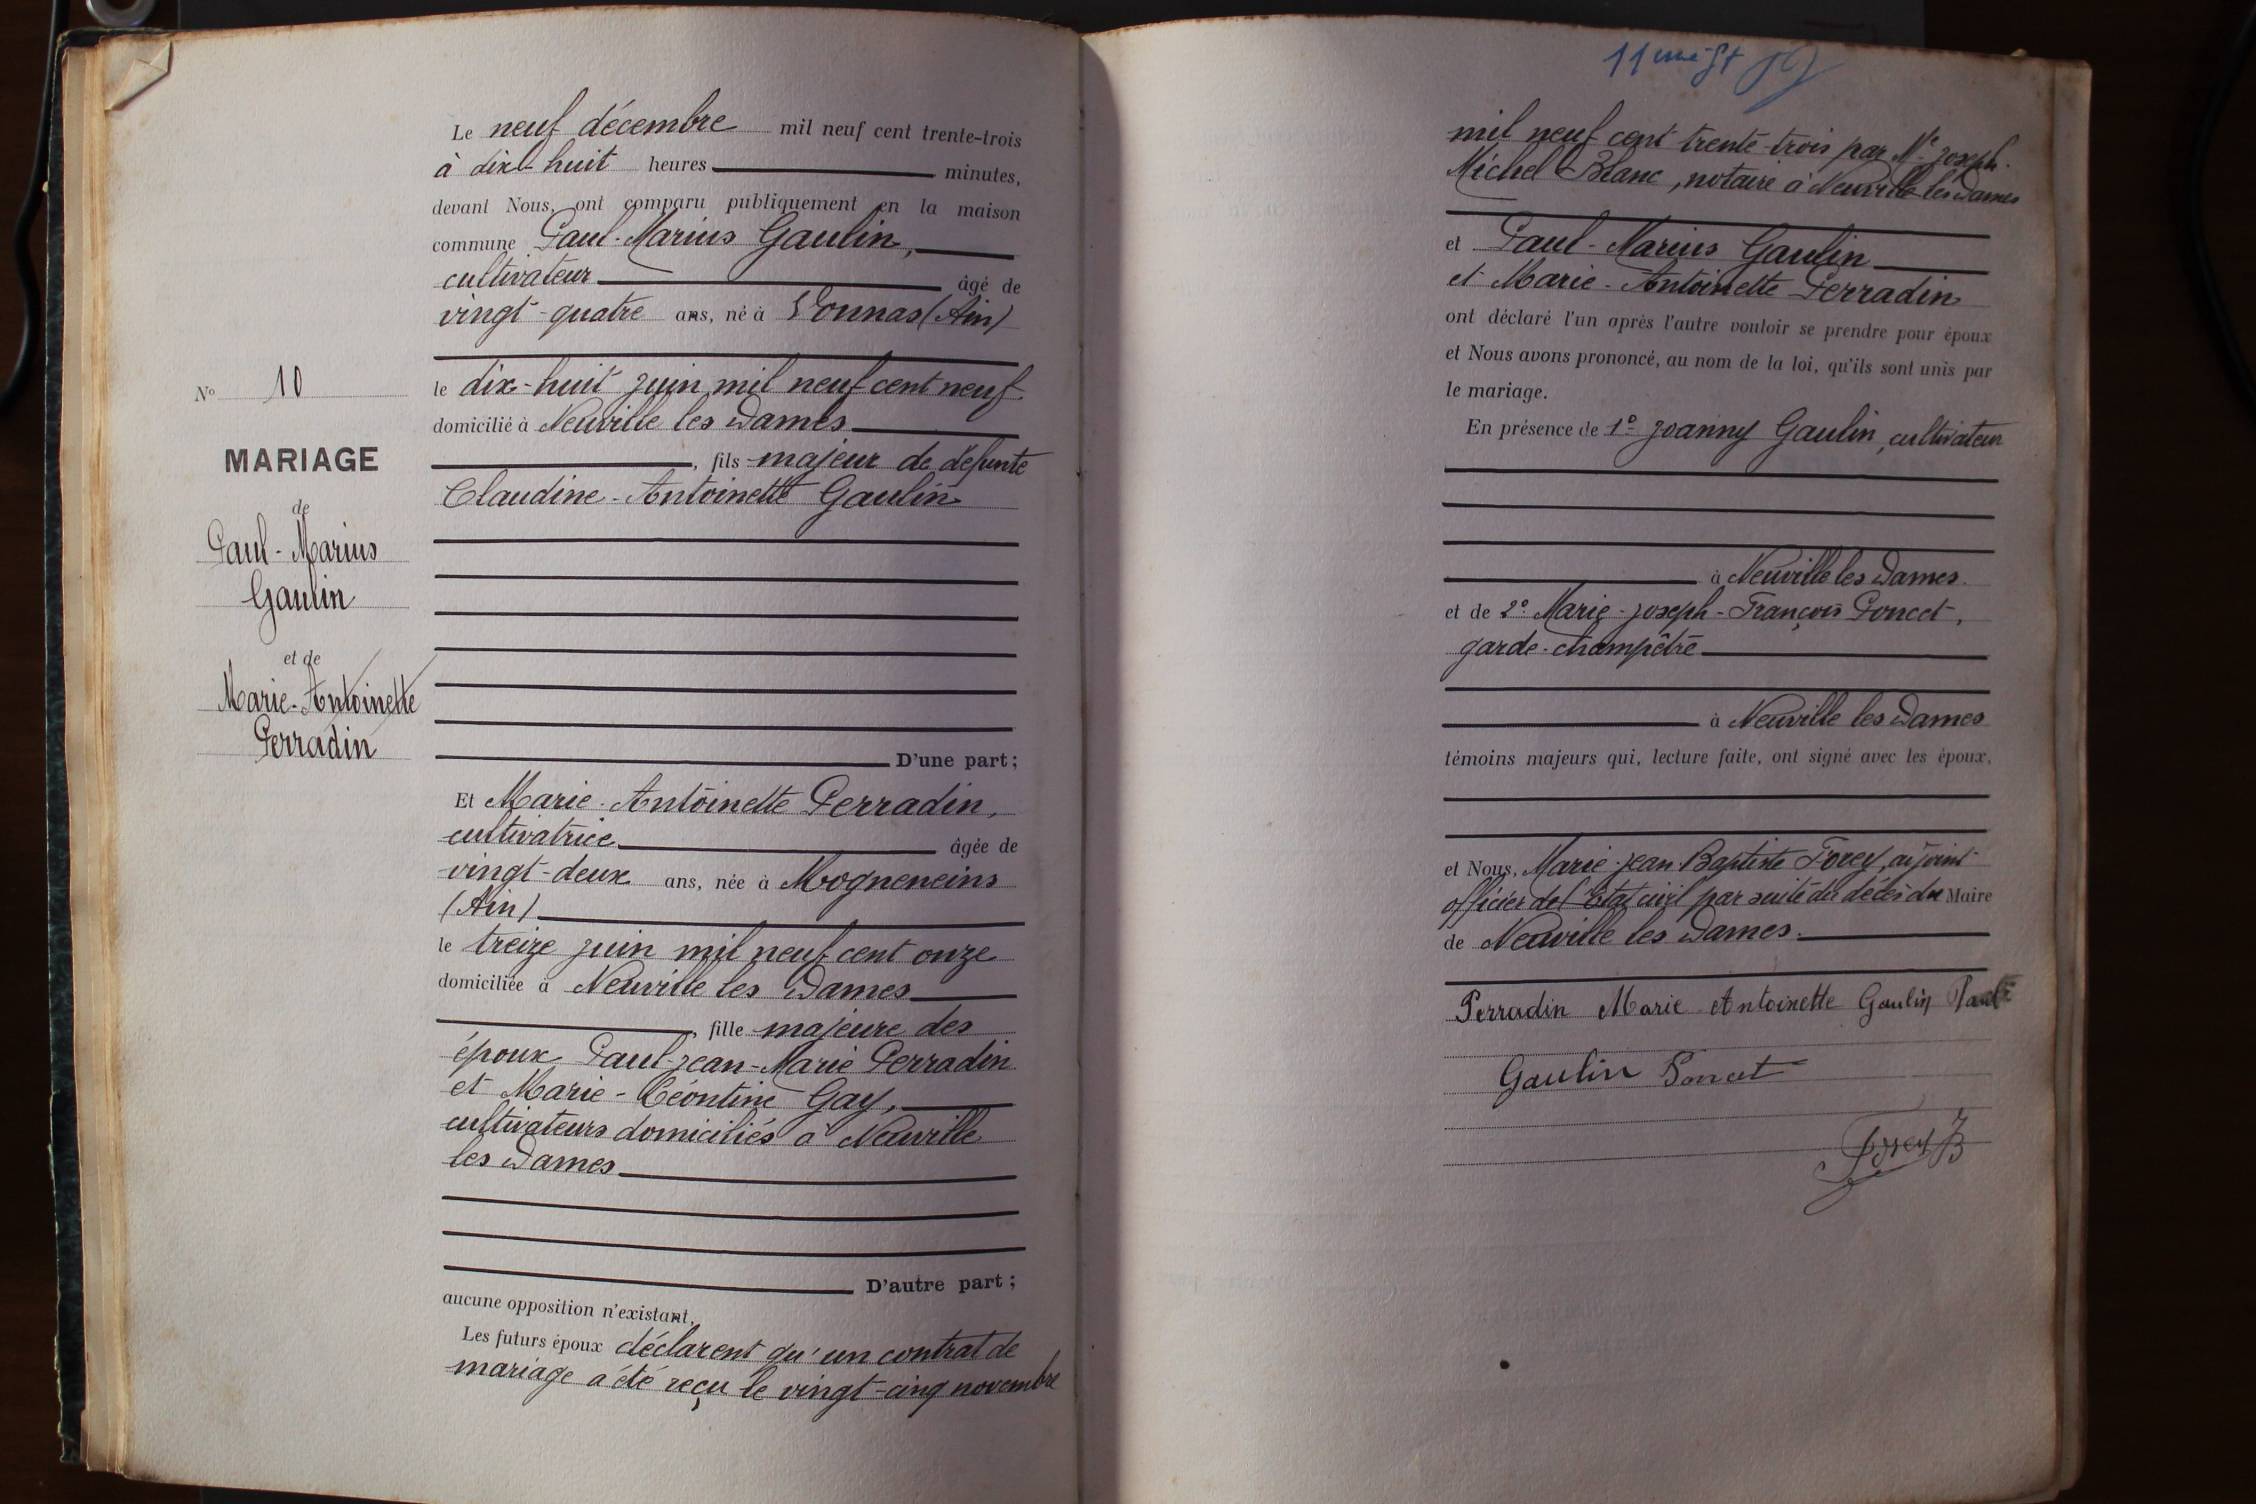 Le neuf décembre mil neuf cent trente-trois
à dix-huit heures minutes,
devant Nous, ont comparu publiquement en la maison
commune Paul-Marius Gaulin,
cultivateur âgé de
vingt-quatre ans, né à Vonnas (Ain)
le dix-huit juin mil neuf cent neuf
domicilié à Neuville les Dames
, fils majeur de défunte
Claudine-Antoinette Gaulin
D'une part ;
Et Marie-Antoinette Perradin,
cultivatrice âgée de
vingt-deux ans, née à Mogneneins
(Ain)
le treize juin mil neuf cent onze
domiciliée à Neuville les Dames
, fille majeure des
époux Paul-Jean-Marie Perradin
et Marie-Léontine Gay,
cultivateurs domiciliés à Neuville
les Dames
D'autre part ;
aucune opposition n'existant,
Les futurs époux déclarent qu'un contrat de
mariage a été reçu le vingt-cinq novembre
N° 10
MARIAGE
de
Paul-Marius
Gaulin
et de
Marie-Antoinette
Perradin
mil neuf cent trente-trois par Me Joseph-
Michel Blanc, notaire à Neuville les Dames
et Paul-Marius Gaulin
et Marie-Antoinette Perradin
ont déclaré l'un après l'autre vouloir se prendre pour époux
et Nous avons prononcé, au nom de la loi, qu'ils sont unis par
le mariage.
En présence de 1° Joanny Gaulin, cultivateur
à Neuville les Dames.
et de 2° Marie-Joseph-François Poncet,
garde-champêtre
à Neuville les Dames
témoins majeurs qui, lecture faite, ont signé avec les époux,
et Nous, Marie-Jean-Baptiste Forey, adjoint
officier de l'Etat civil par suite du décès du Maire
de Neuville les Dames.
Perradin Marie Antoinette Gaulin Paul
Gaulin Poncet
Forey JB